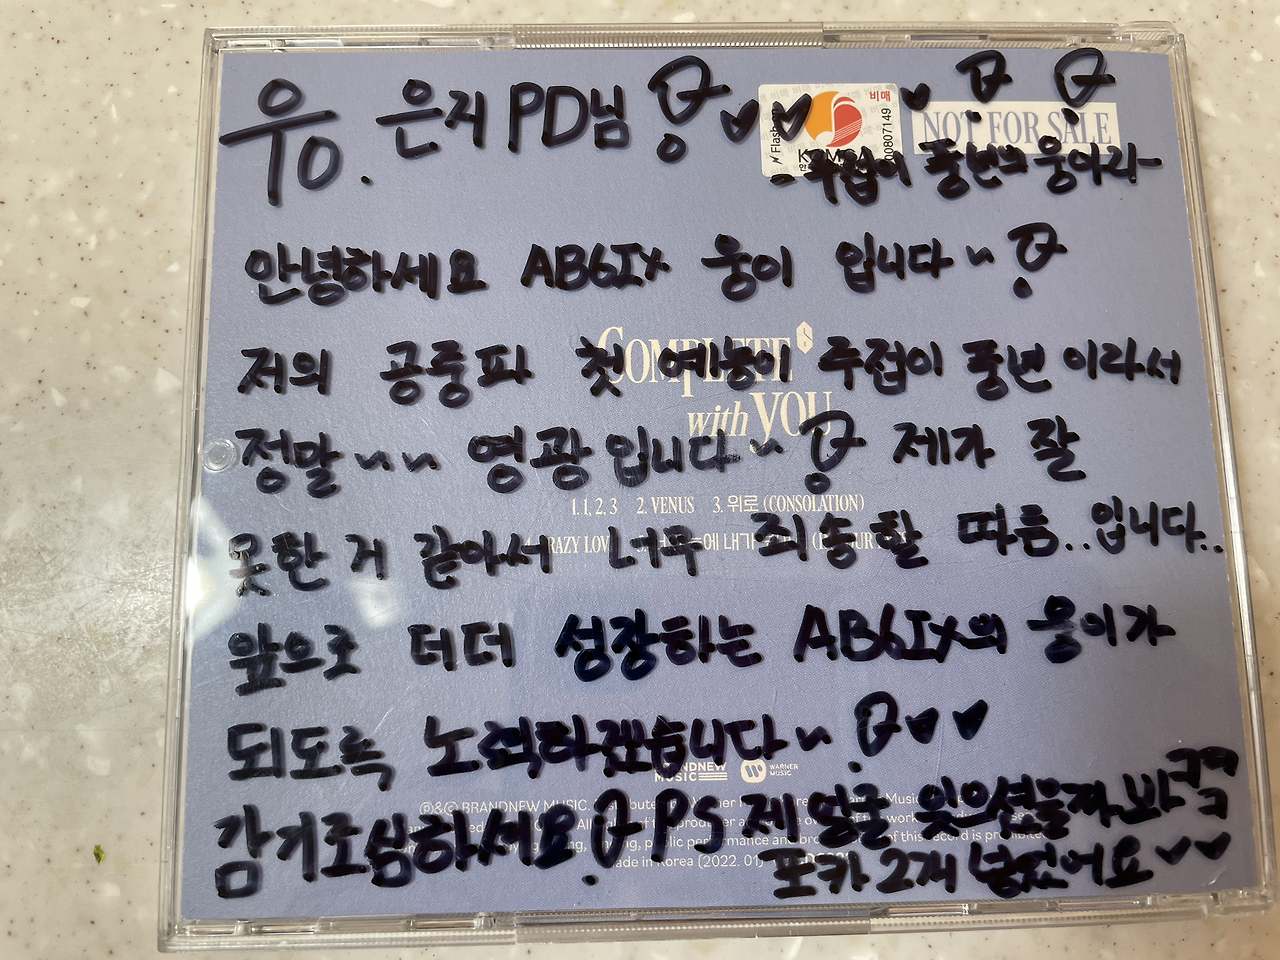 웅. 은지 PD님 ♥♥ ♥
비매
Flash
KOMCA
00807149
NOT FOR SALE
- 주접이 풍년의 웅아리-
안녕하세요 AB6IX 웅이 입니다~
저의 공중파 첫 예능이 주접이 풍년 이라서
COMPLETE
with YOU
정말~~~ 영광입니다~ 제가 잘
1. 1, 2, 3 2. VENUS 3. 위로 (CONSOLATION)
못한 거 같아서 너무 죄송할 따름..입니다..
CRAZY LOVE
앞으로 더더 성장하는 AB6IX의 웅이가
되도록 노력하겠습니다~ ♥♥
BRANDNEW MUSIC WARNER MUSIC
감기조심하세요 PS 제 얼굴 잊으셨을까봐
포카 2개 넣었어요♥♥
ade in Korea (2022. 01)